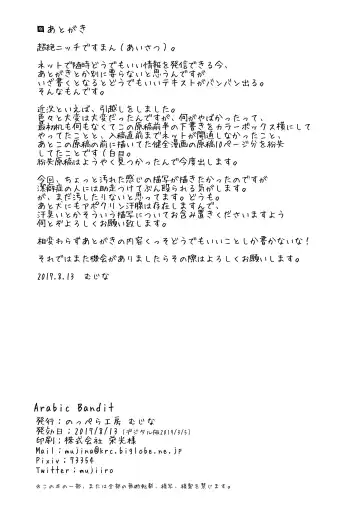 あとがき
超絶ニッチですまん(あいさつ)。
ネットで随時どうでもいい情報を発信できる今、
あとがきとか別に要らないと思うんですが
いざ書くとなるとどうでもいいテキストがバンバン出る。
そんなもんです。
近況といえば、引越しをしました。
色々と大変は大変だったんですが、何がやばかったって、
最初机も何もなくてこの原稿前半の下書きをカラーボックス横にして
やってたことと、入稿直前までネットが開通しなかったこと、
あとこの原稿の前に描いてた健全漫画の原稿10ページ分を紛失
してたことです(白目。
紛失原稿はようやく見つかったんで今度出します。
今回、ちょっと汚れた感じの描写が描きたかったのですが
潔癖症の人には助走つけてぶん殴られる気がします。
が、まだ汚したりないと思ってます。どうも。
あと犬にもアポクリン汗腺は存在しますんで、
汗臭いとかそういう描写についてお含み置きくださいますよう
何とぞよろしくお願い致します。
相変わらずあとがきの内容くっそどうでもいいことしか書かないな!
それではまた機会がありましたらその際はよろしくお願いします。
2017.8.13 むじな
Arabic Bandit
発行:のっぺら工房 むじな
発効日:2017/8/13 (デジタル版2019/3/5)
印刷:株式会社 栄光様
Mail:mujina@krc.biglobe.ne.jp
Pixiv:73354
Twitter:mujiiro
※この本の一部、または全部の無断転載、複写、複製を禁じます。